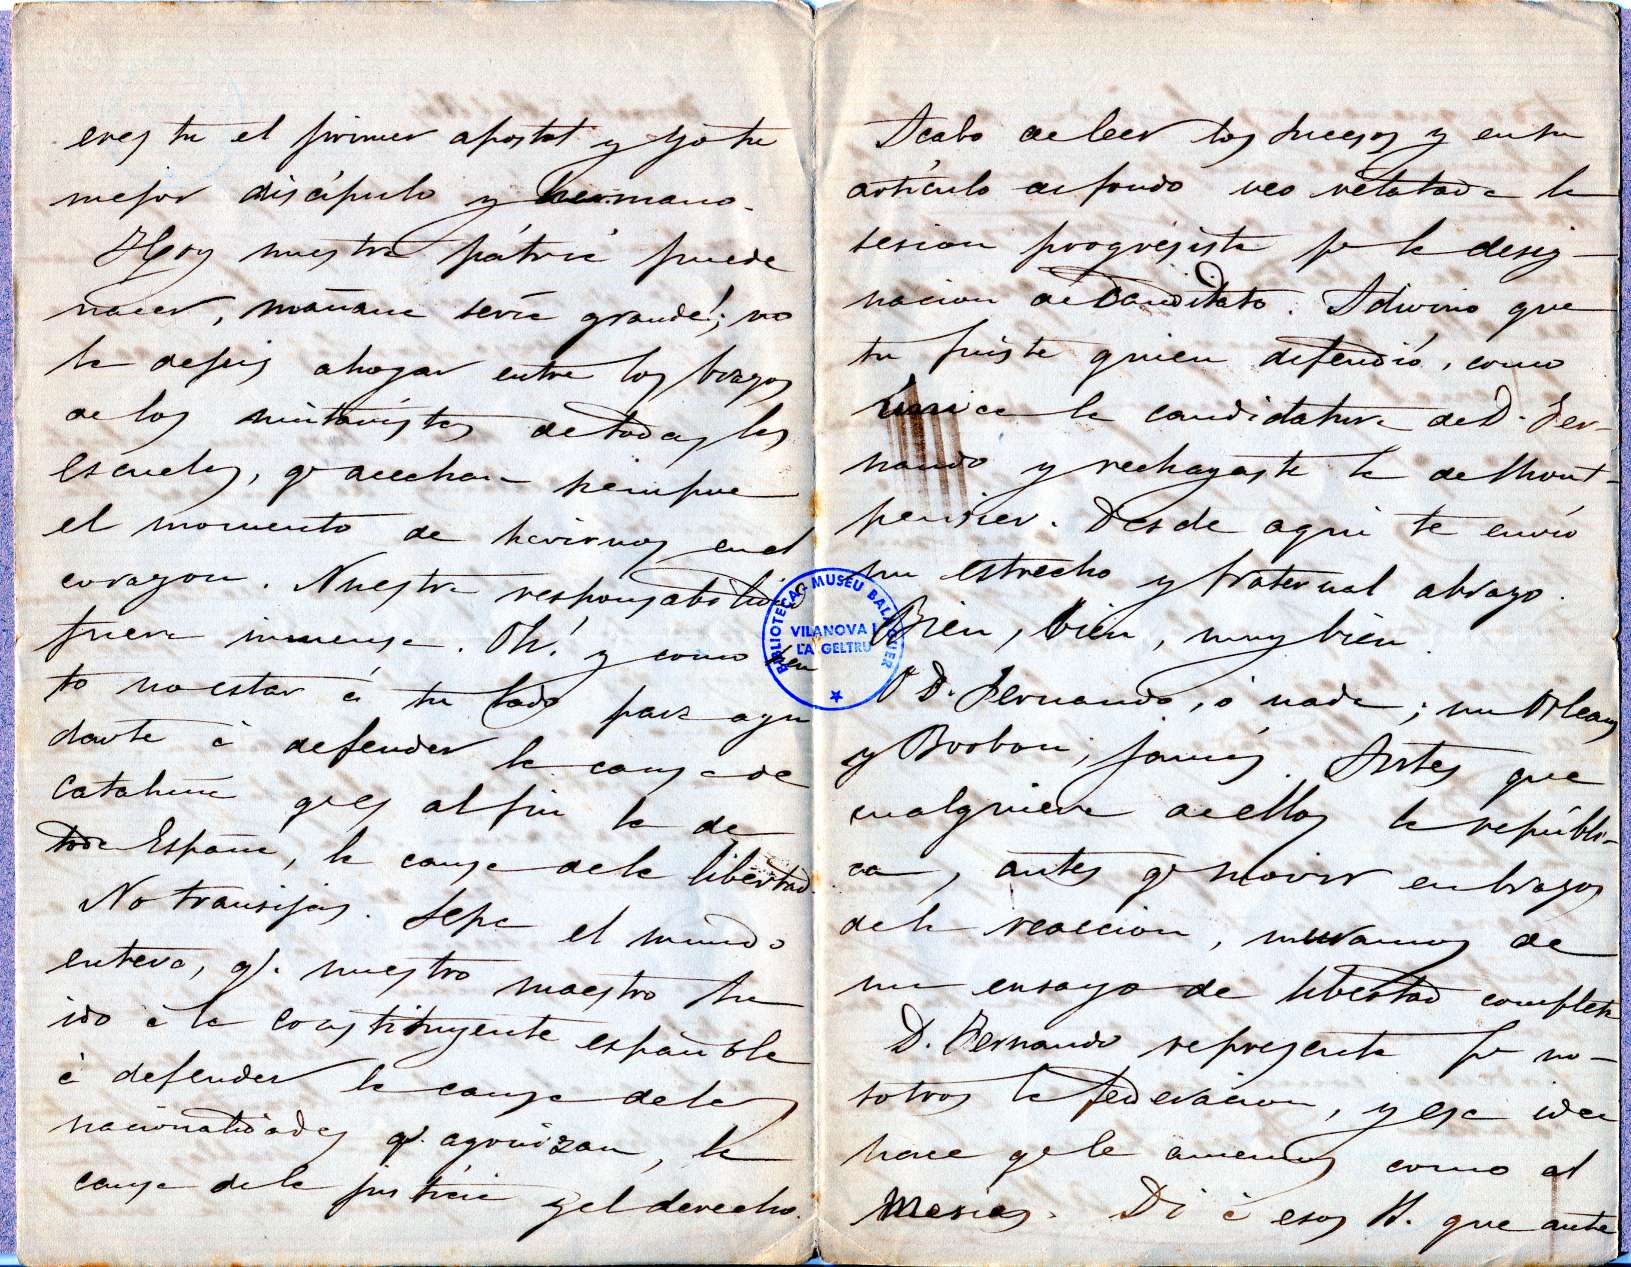 eres tu el primer apostol y yo tu
mejor discípulo y hermano.
Hoy nuestra pátria puede
nacer, mañana sería grande; no
la dejeis ahogar entre los brazos
de los unitaristas de todas las
escuelas, qe acechan siempre
el momento de herirnos en el
corazon. Nuestra responsabilidad
fuera inmensa. Oh! y como sien
to no estar á tu lado para ayu
darte á defender la causa de
Cataluña qe es al fin la de
toda España, la causa de la libertad.
No transijas. Sepa el mundo
entero, qe. nuestro maestro ha
ido á la constituyente española
á defender la causa de las
nacionalidades qe. agonizan, la
causa de la justicia y el derecho.
Acabo de leer los Sucesos y en su
artículo de fondo veo relatada la
sesion progresista pa la desig-
nacion de Candidato. Adivino que
tu fuiste quien defendió, como
única la candidatura de D. Fer-
nando y rechazaste la de Mont-
pensier. Desde aqui te envio
un estrecho y fraternal abrazo.
Bien, bien, muy bien.
O D. Fernando, ó nada; un Orleans
y Borbon; jamás. Antes que
cualquiera de ellos la repúbli-
ca, antes qe morir en brazos
de la reaccion, muramos de
un ensayo de libertad completa
D. Fernando representa pa no-
sotros la federacion, y esa idea
hace qe le amemos como al
Mesias. Di á esos H. que ante
BIBLIOTECA MUSEU BALAGUER
VILANOVA I
LA GELTRÚ